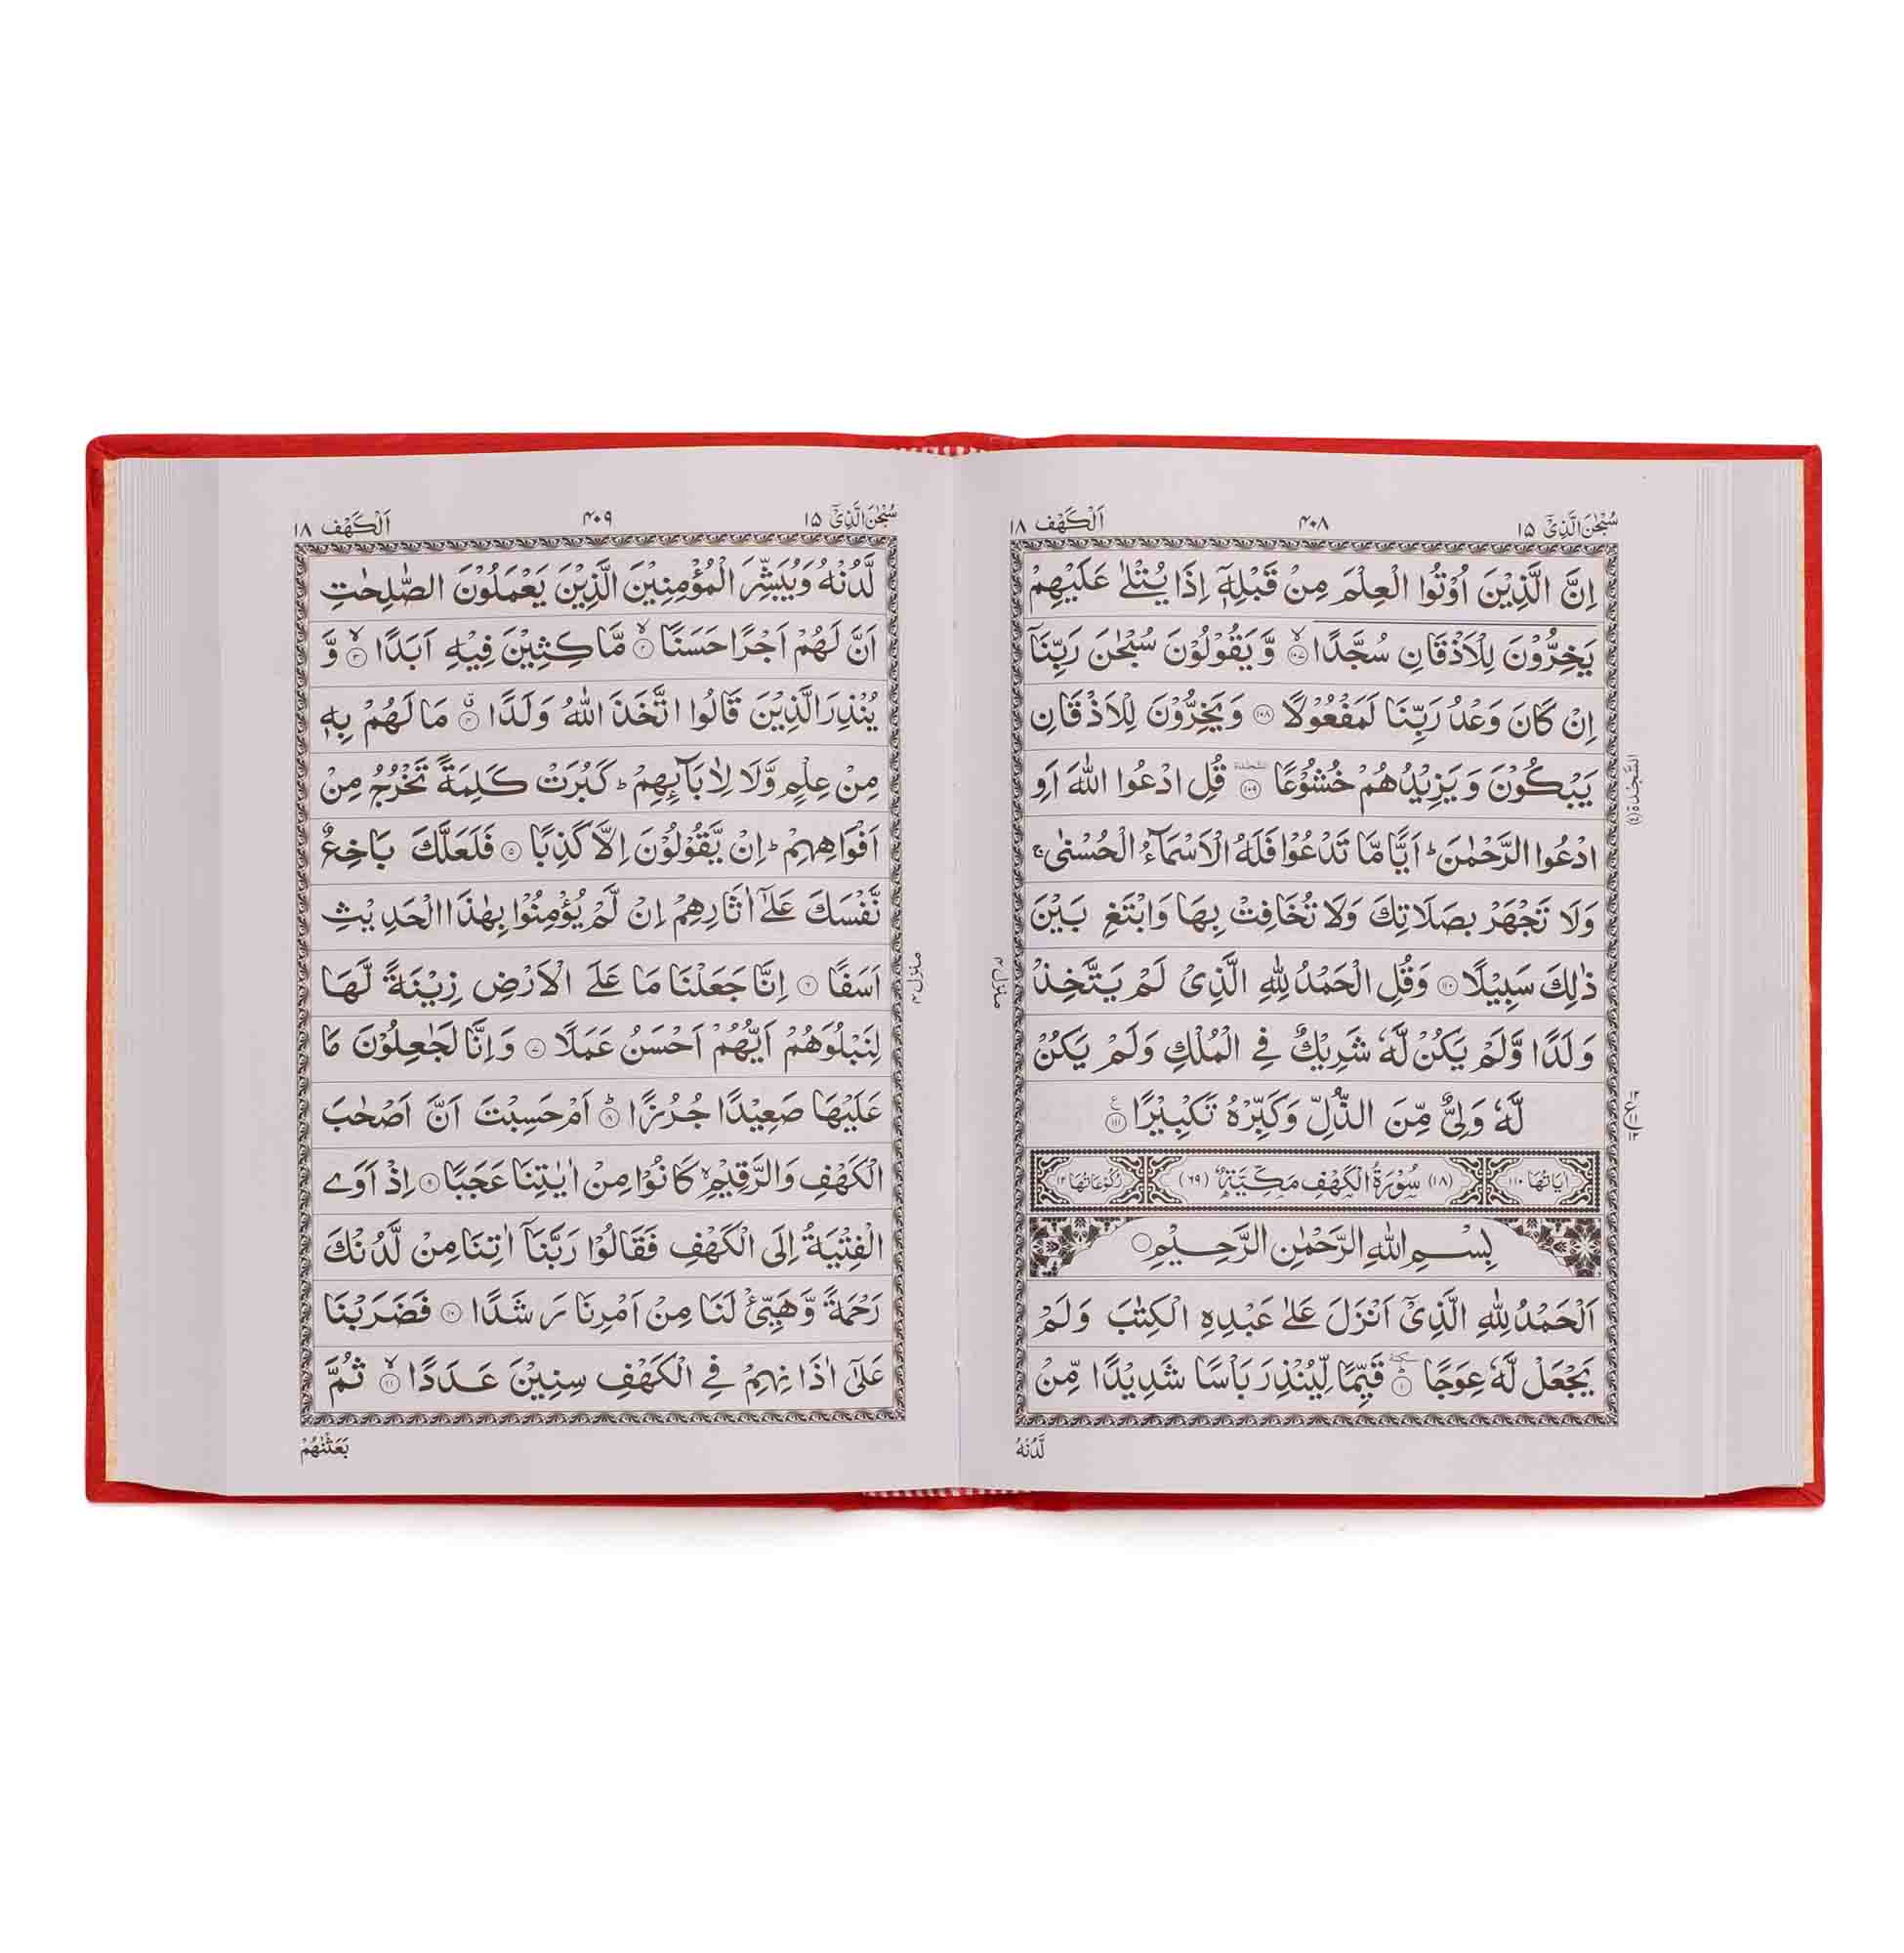 سُبْحٰنَ الَّذِیْۤ ۱۵ ۴۰۸ اَلْكَهْف ۱۸
اِنَّ الَّذِیْنَ اُوْتُوا الْعِلْمَ مِنْ قَبْلِهٖۤ اِذَا یُتْلٰی عَلَیْهِمْ
یَخِرُّوْنَ لِلْاَذْقَانِ سُجَّدًا ۙ﴿۱۰۷﴾ وَّ یَقُوْلُوْنَ سُبْحٰنَ رَبِّنَاۤ
اِنْ كَانَ وَعْدُ رَبِّنَا لَمَفْعُوْلًا ﴿۱۰۸﴾ وَ یَخِرُّوْنَ لِلْاَذْقَانِ
یَبْكُوْنَ وَ یَزِیْدُهُمْ خُشُوْعًا ﴿۱۰۹﴾ السجدة قُلِ ادْعُوا اللّٰهَ اَوِ
السَّجْدَة (۴)
ادْعُوا الرَّحْمٰنَ ؕ اَیًّا مَّا تَدْعُوْا فَلَهُ الْاَسْمَآءُ الْحُسْنٰی ۚ
وَلَا تَجْهَرْ بِصَلَاتِكَ وَلَا تُخَافِتْ بِهَا وَابْتَغِ بَیْنَ
ذٰلِكَ سَبِیْلًا ﴿۱۱۰﴾ وَقُلِ الْحَمْدُ لِلّٰهِ الَّذِیْ لَمْ یَتَّخِذْ
منزل ۴
وَلَدًا وَّلَمْ یَكُنْ لَّهٗ شَرِیْكٌ فِی الْمُلْكِ وَلَمْ یَكُنْ
لَّهٗ وَلِیٌّ مِّنَ الذُّلِّ وَكَبِّرْهُ تَكْبِیْرًا ﴿۱۱۱﴾ ع
۱۲ ع ۱۱ ۱۲
اٰیَاتُهَا ۱۱۰ (۱۸) سُوْرَةُ الْكَهْفِ مَكِّیَّةٌ (۶۹) رُكُوْعَاتُهَا ۱۲
بِسْمِ اللّٰهِ الرَّحْمٰنِ الرَّحِیْمِ
اَلْحَمْدُ لِلّٰهِ الَّذِیْۤ اَنْزَلَ عَلٰی عَبْدِهِ الْكِتٰبَ وَلَمْ
یَجْعَلْ لَّهٗ عِوَجًا ؕ﴿۱﴾ سكتة قَیِّمًا لِّیُنْذِرَ بَاْسًا شَدِیْدًا مِّنْ
لَّدُنْهُ
سُبْحٰنَ الَّذِیْۤ ۱۵ ۴۰۹ اَلْكَهْف ۱۸
لَّدُنْهُ وَیُبَشِّرَ الْمُؤْمِنِیْنَ الَّذِیْنَ یَعْمَلُوْنَ الصّٰلِحٰتِ
اَنَّ لَهُمْ اَجْرًا حَسَنًا ۙ﴿۲﴾ مَّاكِثِیْنَ فِیْهِ اَبَدًا ۙ﴿۳﴾ وَّ
یُنْذِرَ الَّذِیْنَ قَالُوا اتَّخَذَ اللّٰهُ وَلَدًا ﴿۴﴾ مَا لَهُمْ بِهٖ
مِنْ عِلْمٍ وَّلَا لِاٰبَآىِٕهِمْ ؕ كَبُرَتْ كَلِمَةً تَخْرُجُ مِنْ
اَفْوَاهِهِمْ ؕ اِنْ یَّقُوْلُوْنَ اِلَّا كَذِبًا ﴿۵﴾ فَلَعَلَّكَ بَاخِعٌ
نَّفْسَكَ عَلٰۤی اٰثَارِهِمْ اِنْ لَّمْ یُؤْمِنُوْا بِهٰذَا الْحَدِیْثِ
اَسَفًا ﴿۶﴾ اِنَّا جَعَلْنَا مَا عَلَی الْاَرْضِ زِیْنَةً لَّهَا
منزل ۴
لِنَبْلُوَهُمْ اَیُّهُمْ اَحْسَنُ عَمَلًا ﴿۷﴾ وَاِنَّا لَجٰعِلُوْنَ مَا
عَلَیْهَا صَعِیْدًا جُرُزًا ؕ﴿۸﴾ اَمْ حَسِبْتَ اَنَّ اَصْحٰبَ
الْكَهْفِ وَالرَّقِیْمِ ۙ كَانُوْا مِنْ اٰیٰتِنَا عَجَبًا ﴿۹﴾ اِذْ اَوَی
الْفِتْیَةُ اِلَی الْكَهْفِ فَقَالُوْا رَبَّنَاۤ اٰتِنَا مِنْ لَّدُنْكَ
رَحْمَةً وَّهَیِّئْ لَنَا مِنْ اَمْرِنَا رَشَدًا ﴿۱۰﴾ فَضَرَبْنَا
عَلٰۤی اٰذَانِهِمْ فِی الْكَهْفِ سِنِیْنَ عَدَدًا ۙ﴿۱۱﴾ ثُمَّ
بَعَثْنٰهُمْ